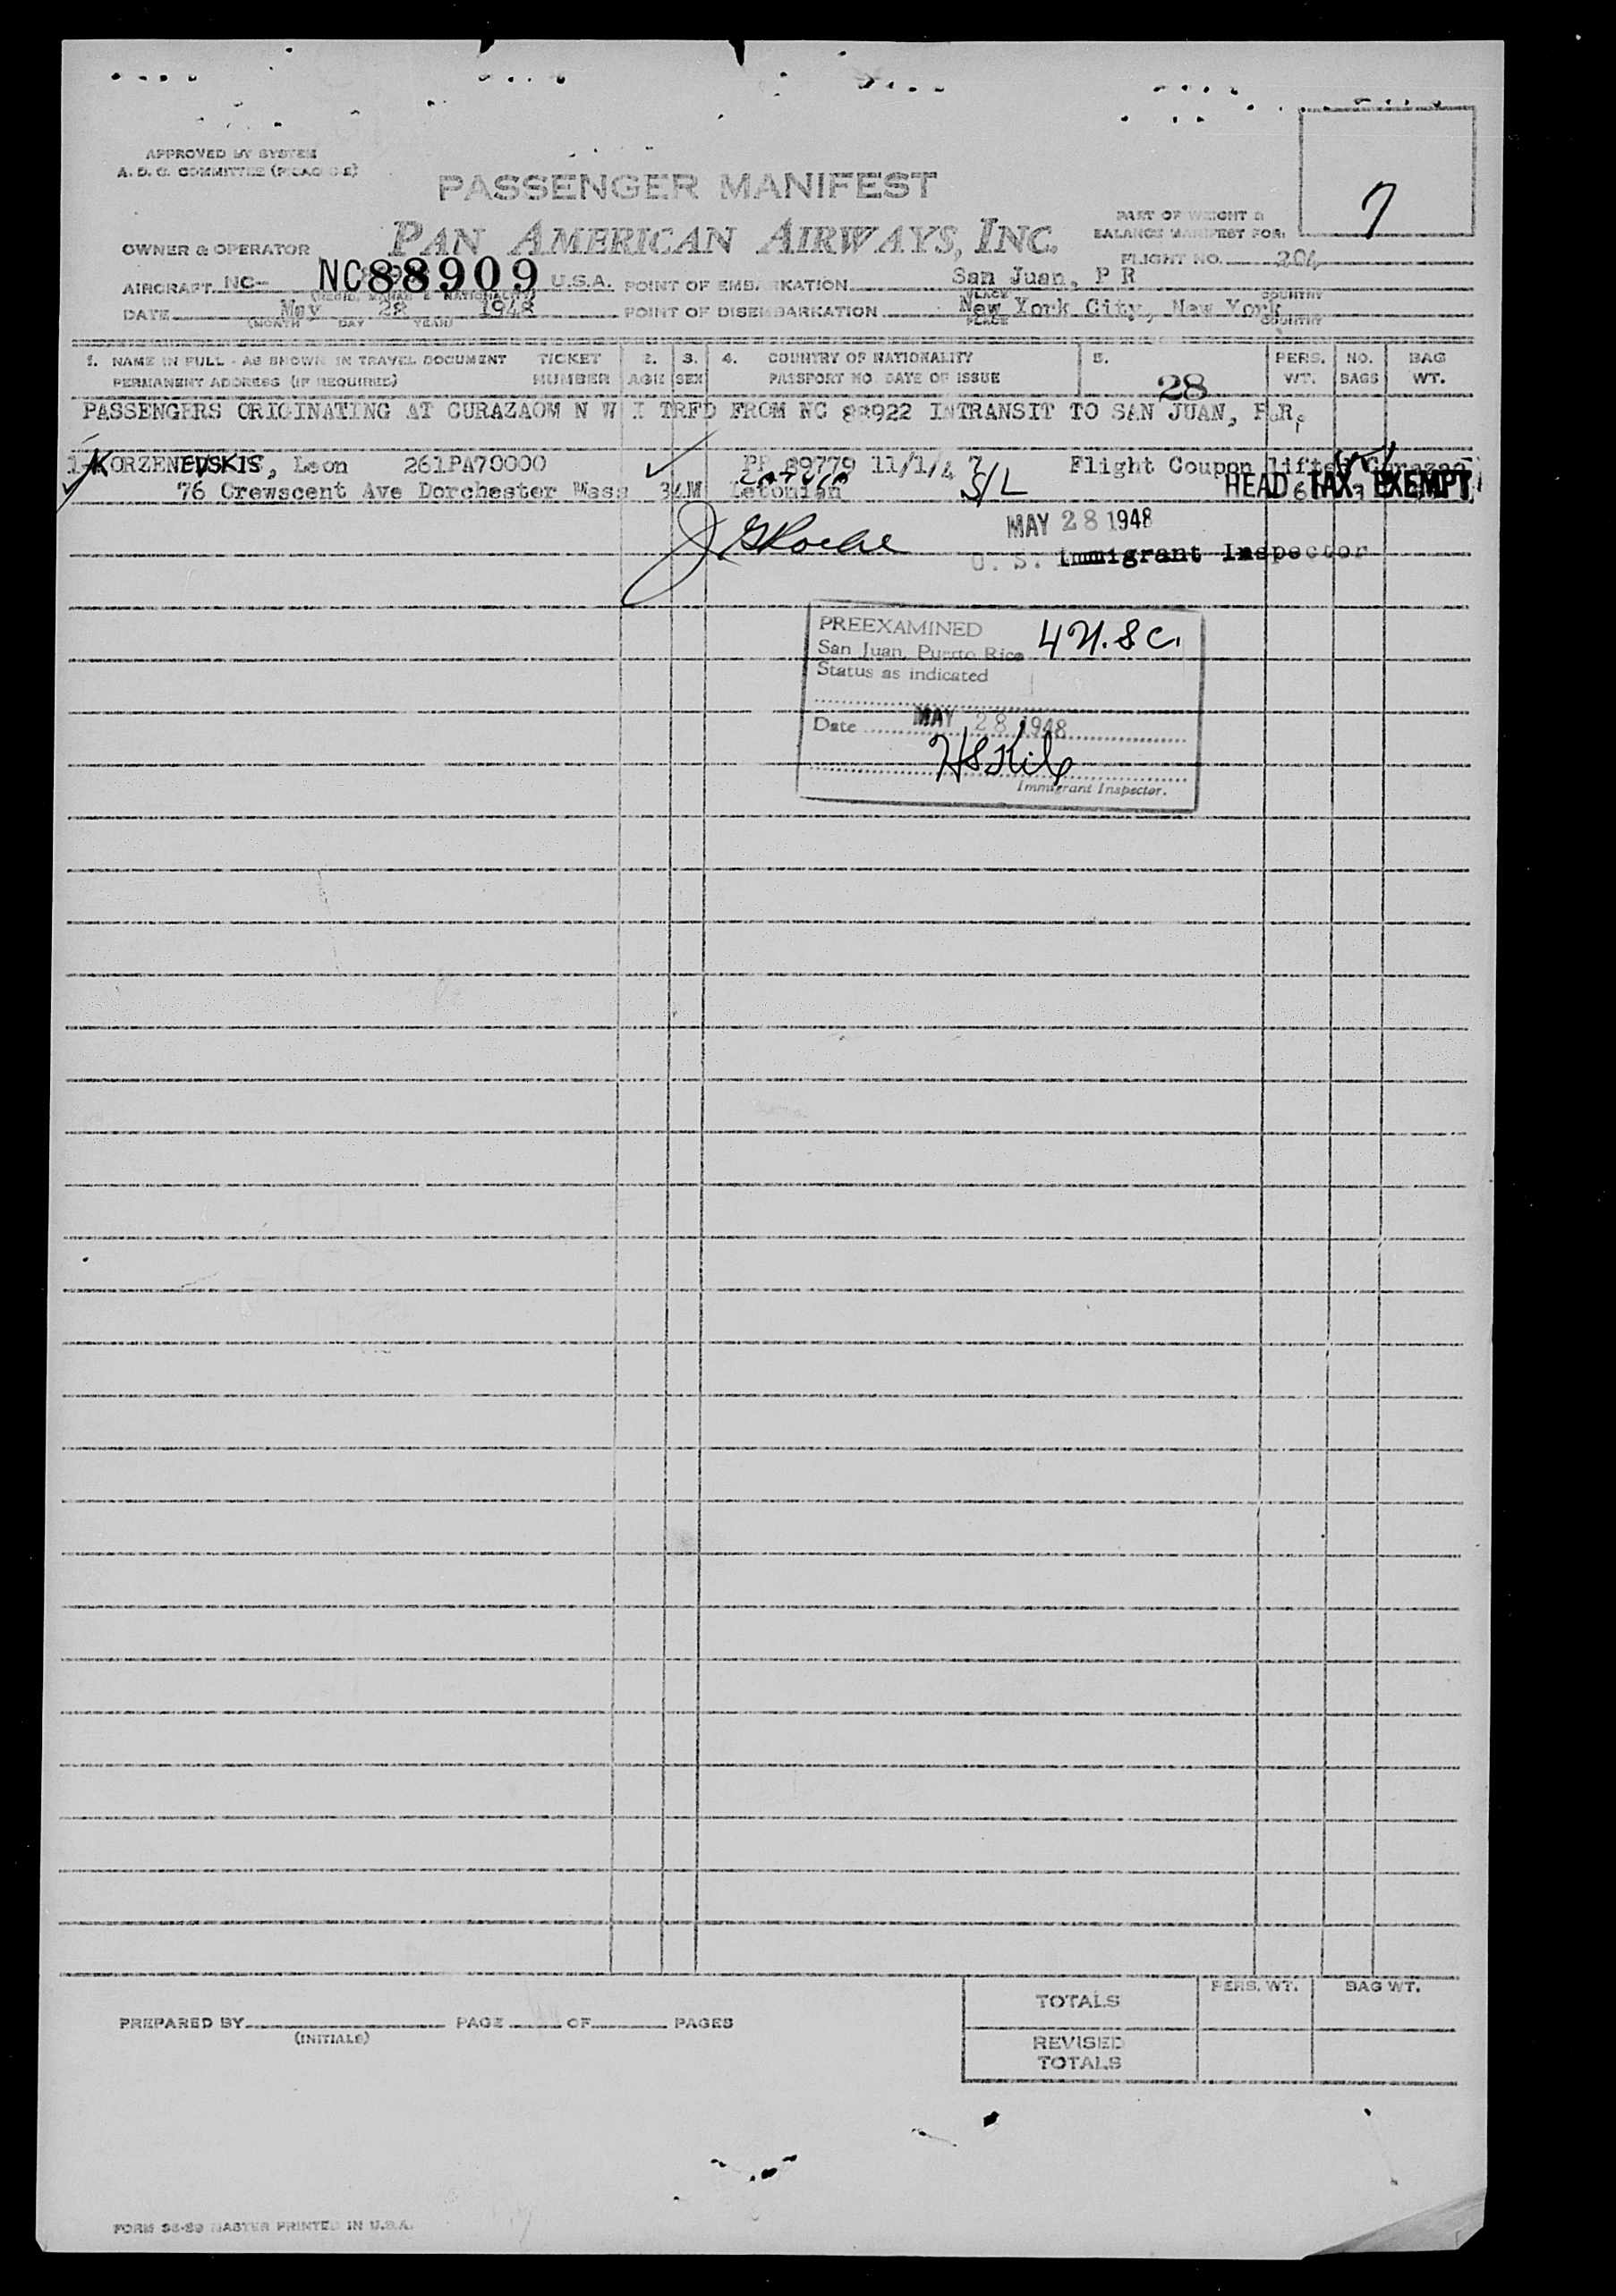 APPROVED BY SYSTEM
A. D. C. COMMITTEE
PASSENGER MANIFEST
7
PART OF WEIGHT &
BALANCE MANIFEST FOR:
OWNER & OPERATOR PAN AMERICAN AIRWAYS, INC.
FLIGHT NO. 204
AIRCRAFT NC- NC88909 U.S.A. POINT OF EMBARKATION San Juan, P R
PLACE COUNTRY
DATE May 28 1948 POINT OF DISEMBARKATION New York City, New York
(MONTH DAY YEAR) PLACE COUNTRY
1. NAME IN FULL - AS SHOWN IN TRAVEL DOCUMENT TICKET 2. 3. 4. COUNTRY OF NATIONALITY 5. PERS. NO. BAG
PERMANENT ADDRESS (IF REQUIRED) NUMBER AGE SEX PASSPORT NO. DATE OF ISSUE 28 WT. BAGS WT.
PASSENGERS ORIGINATING AT CURAZAOM N W I TRFD FROM NC 88922 INTRANSIT TO SAN JUAN, P.R.
KORZENEVSKIS, Leon 261PA70000 PP 89779 11/1/47 Flight Coupon lifted Curazao
76 Crewscent Ave Dorchester Mass 34 M Letonian Latvia S/L HEAD TAX EXEMPT
MAY 28 1948
U. S. Immigrant Inspector
PREEXAMINED 4 N.S.C.
San Juan, Puerto Rico
Status as indicated
Date MAY 28 1948
Immigrant Inspector.
TOTALS PERS. WT. BAG WT.
PREPARED BY PAGE OF PAGES
(INITIALS)
REVISED
TOTALS
FORM MASTER PRINTED IN U.S.A.